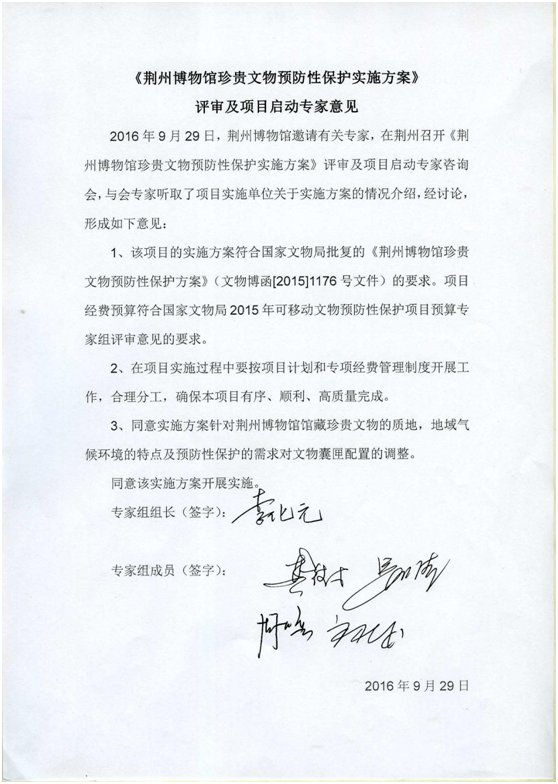 《荆州博物馆珍贵文物预防性保护实施方案》
评审及项目启动专家意见
2016年9月29日，荆州博物馆邀请有关专家，在荆州召开《荆
州博物馆珍贵文物预防性保护实施方案》评审及项目启动专家咨询
会，与会专家听取了项目实施单位关于实施方案的情况介绍，经讨论，
形成如下意见：
1、该项目的实施方案符合国家文物局批复的《荆州博物馆珍贵
文物预防性保护方案》（文物博函[2015]1176号文件）的要求。项目
经费预算符合国家文物局2015年可移动文物预防性保护项目预算专
家组评审意见的要求。
2、在项目实施过程中要按项目计划和专项经费管理制度开展工
作，合理分工，确保本项目有序、顺利、高质量完成。
3、同意实施方案针对荆州博物馆馆藏珍贵文物的质地，地域气
候环境的特点及预防性保护的需求对文物囊匣配置的调整。
同意该实施方案开展实施。
专家组组长（签字）：李化元
专家组成员（签字）：
2016年9月29日